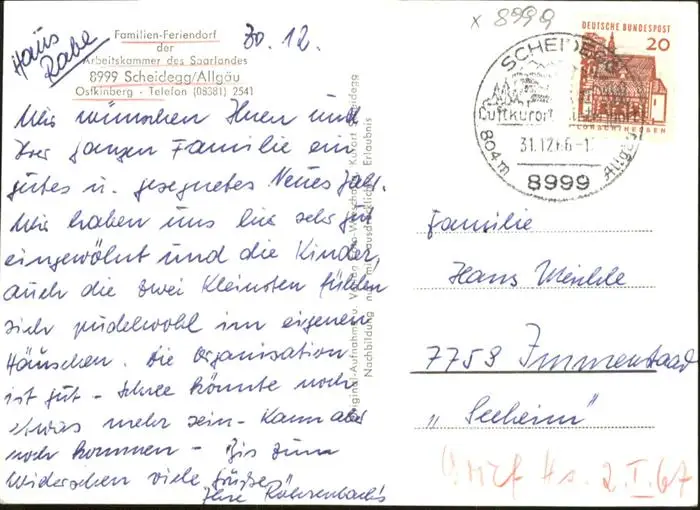 Haus
Rabe
30.12.
Familien-Feriendorf
der
Arbeitskammer des Saarlandes
8999 Scheidegg/Allgäu
Ostkinberg - Telefon (08381) 2541
Wir wünschen Ihnen und
Ihrer ganzen Familie ein
gutes u. gesegnetes Neues Jahr.
Wir haben uns hier sehr gut
eingewöhnt und die Kinder,
auch die zwei Kleinsten fühlen
sich pudelwohl im eigenen
Häuschen. Die Organisation
ist gut - Schnee könnte noch
etwas mehr sein - Kann aber
noch kommen - Bis zum
Wiedersehen viele Grüße
Ihre Röhrenbach's
Original-Aufnahme u. Verlag Kurort Scheidegg
Nachbildung nur mit ausdrücklicher Erlaubnis
x 8999
DEUTSCHE BUNDESPOST
20
LORSCH/HESSEN
SCHEIDEGG
Luftkurort
804m
Allgäu
31.12.66-1
8999
Familie
Hans
7759 Immenstaad
„Seeheim"
Brief Hs. 2.I.67